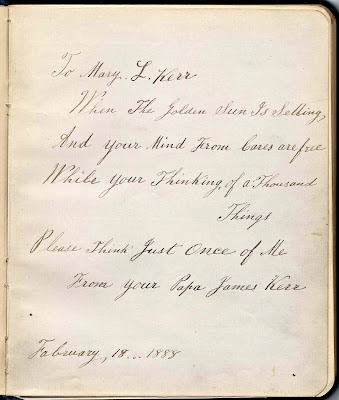 To Mary L. Kerr
When The Golden Sun Is Setting
And your Mind From Cares are free
While your Thinking of a Thousand
Things
Please Think Just Once of Me
From your Papa James Kerr
Fabruary, 18... 1888